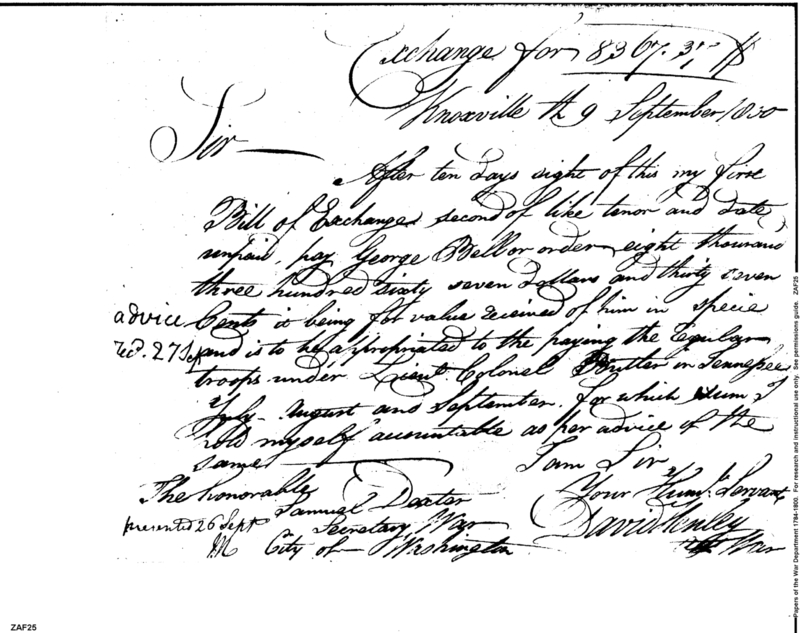 Exchange for 8367.37 $
Knoxville th 9 September 1800
Sir
After ten days sight of this my first
Bill of Exchange second of like tenor and date
unpaid, pay George Bell or order eight thousand
three hundred sixty seven Dollars and thirty seven
Cents it being for value received of him in specie
and is to be appropriated to the paying the regular
troops under Lieut. Colonel Butler in Tennessee
July August and September, for which sum I
hold myself accountable as per advice of the
same
advice
recd. 27 Sept
I am Sir
Your Humb. Servant
David Henley
War
The honorable
Samuel Dexter
Secretary War
City of Washington
presented 26 Sept
Papers of the War Department 1784-1800. For research and instructional use only. See permissions guide. ZAF25
ZAF25